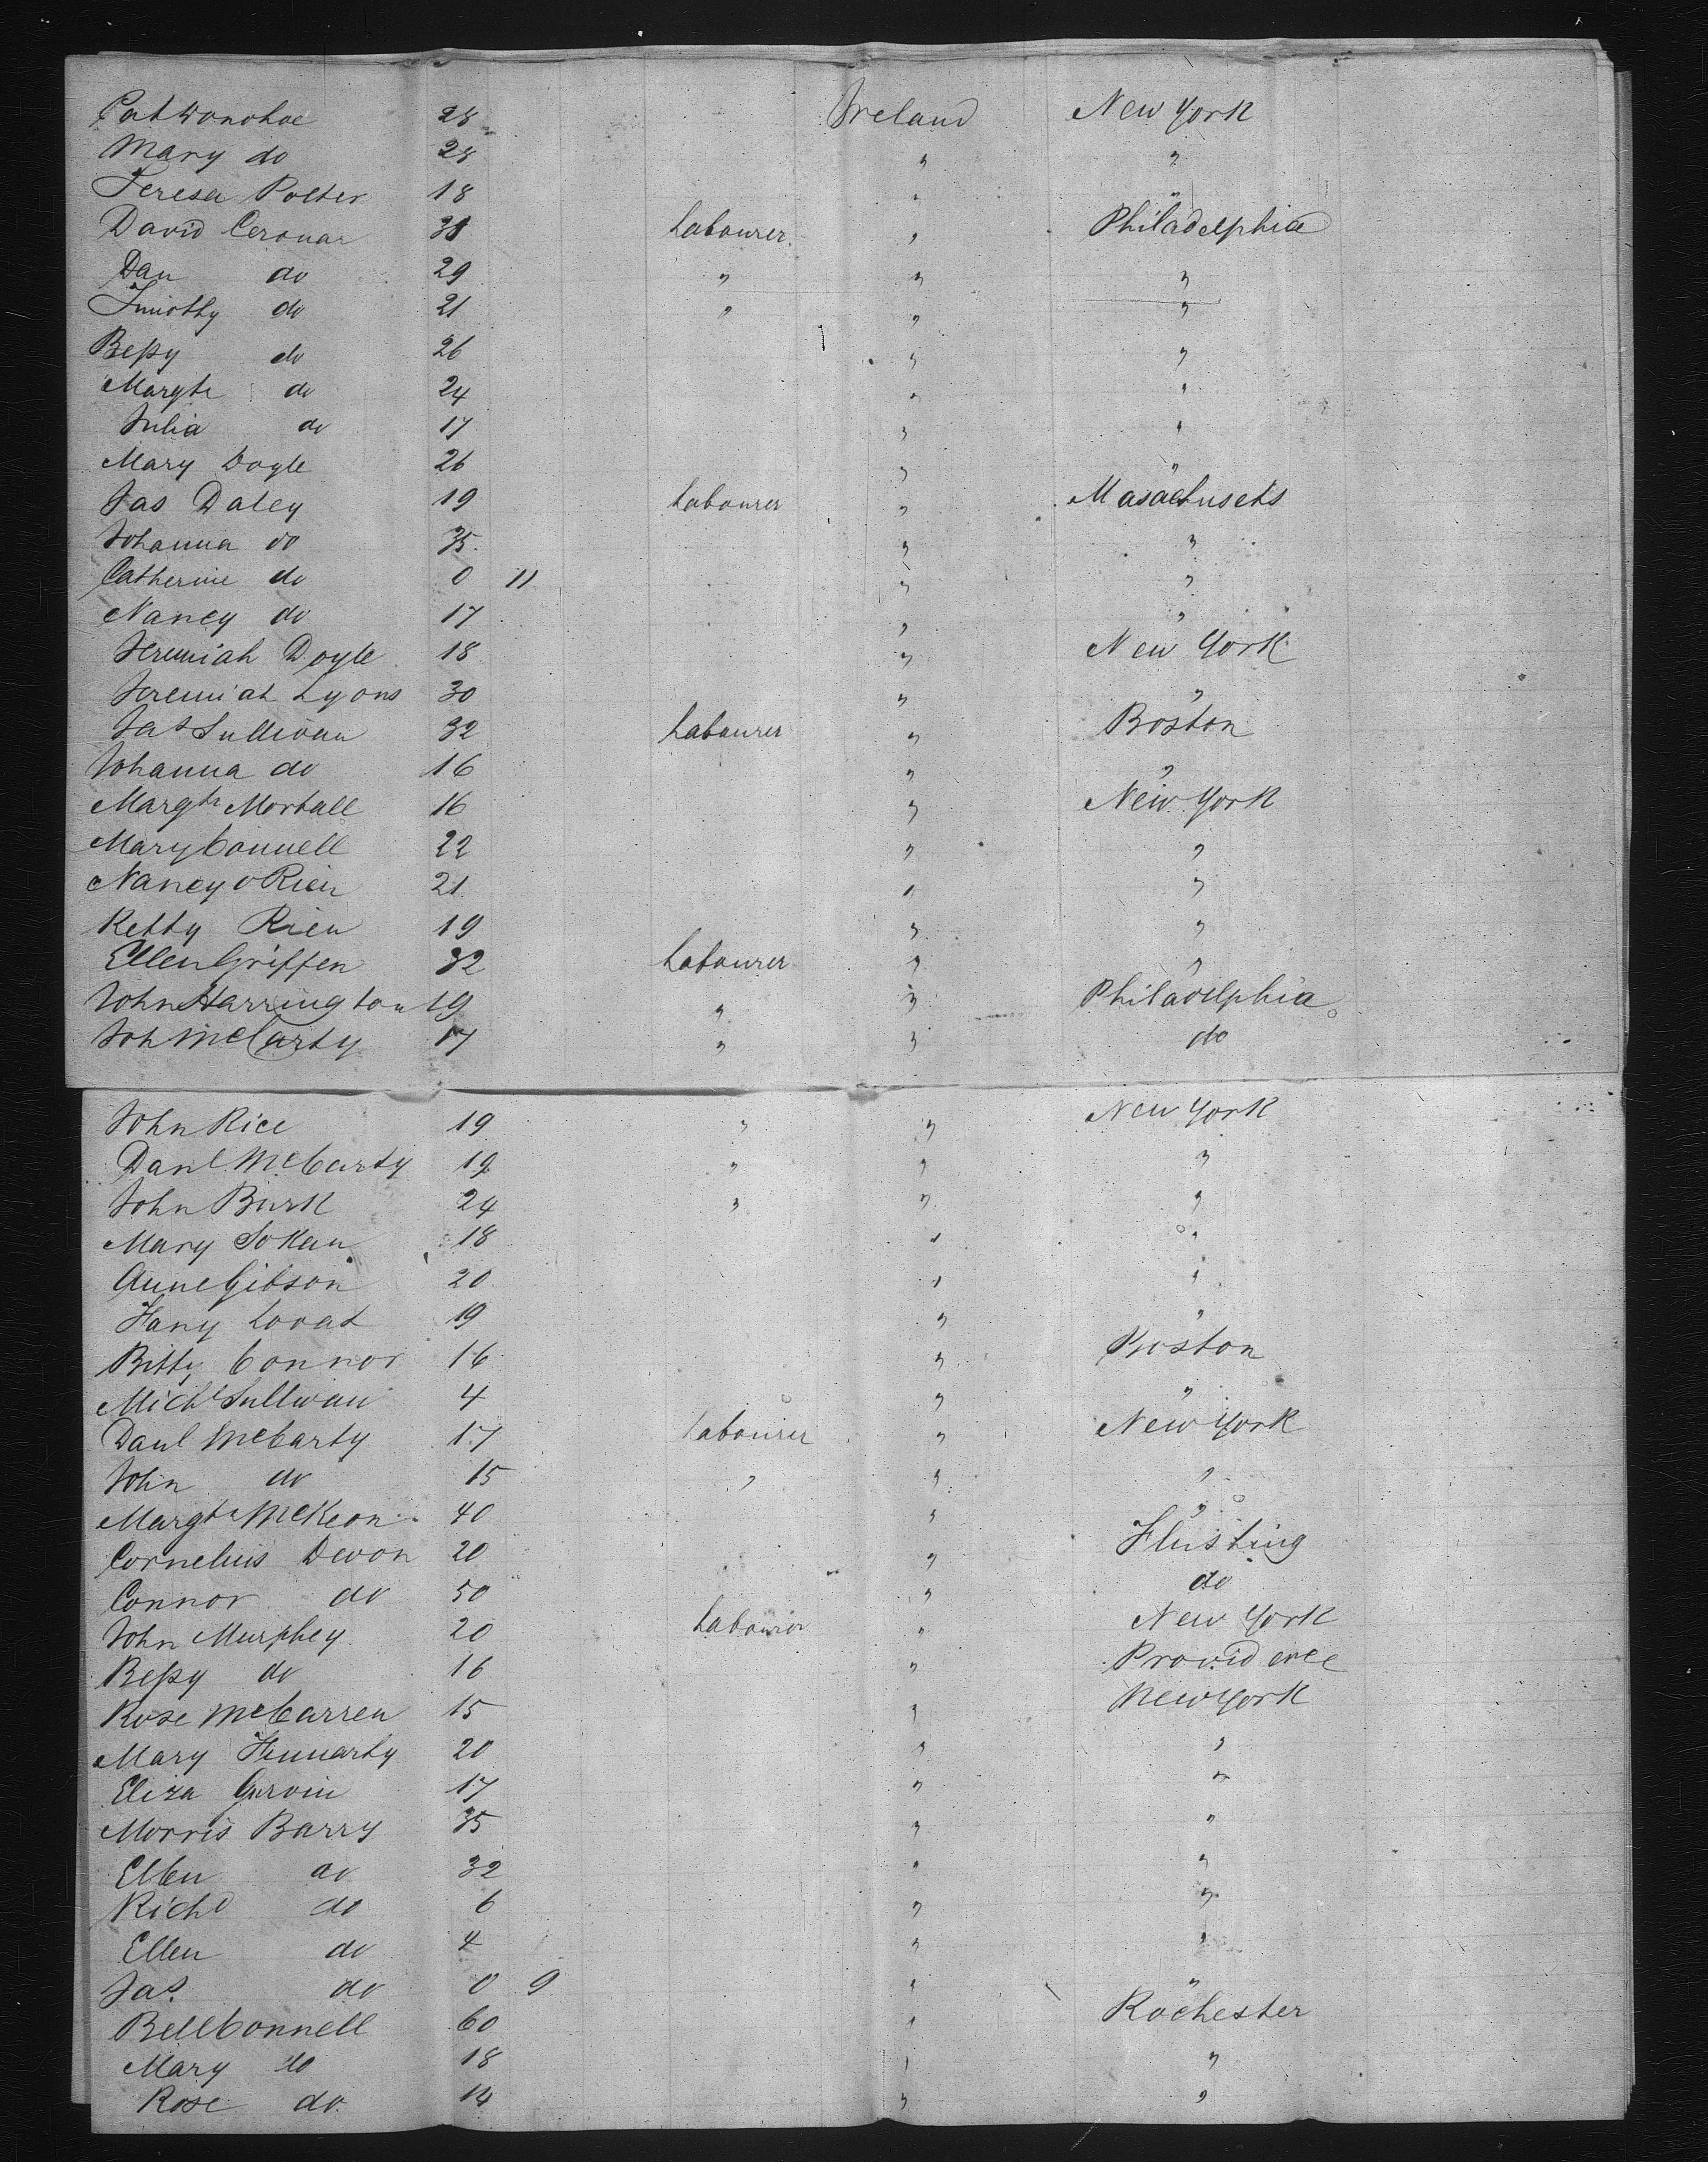 Pat Donohoe 28 Ireland New York
Mary do 28 " "
Teresa Potter 18 " "
David Cronan 31 Labourer " Philadelphia
Dan do 29 " " "
Timothy do 21 " " "
Bessy do 26 " "
Margte do 24 " "
Julia do 17 " "
Mary Doyle 26 " "
Jas Daley 19 Labourer " Masachusets
Johanna do 35 " "
Catherine do 0 11 " "
Nancy do 17 " "
Jeremiah Doyle 18 " New York
Jeremiah Lyons 30 " "
Jas Sullivan 32 Labourer " Boston
Johanna do 16 " "
Margte Mortall 16 " New York
Mary Connell 22 " "
Nancy O Rien 21 " "
Ketty Rien 19 " "
Ellen Griffen 32 Labourer " "
John Harrington 19 " " Philadelphia
Joh McCarty 17 " " do
John Rice 19 " " New York
Danl McCarty 19 " " "
John Burk 24 " " "
Mary 18 " "
Anne Gibson 20 " "
Fany Lovat 19 " "
Bitty Connor 16 " Boston
Michl Sullivan 4 " "
Danl McCarty 17 Labourer " New York
John do 15 " " "
Margte McKeon 40 " "
Cornelius Devon 20 " Flusting
Connor do 50 " do
John Murphey 20 Labourer " New York
Bessy do 16 " Providence
Rose McCarren 15 " New York
Mary Finnarty 20 " "
Eliza Girvin 17 " "
Morris Barry 35 " "
Ellen do 32 " "
Richd do 6 " "
Ellen do 4 " "
Jas do 0 9 " "
Bell Connell 60 " Rochester
Mary do 18 " "
Rose do 14 " "